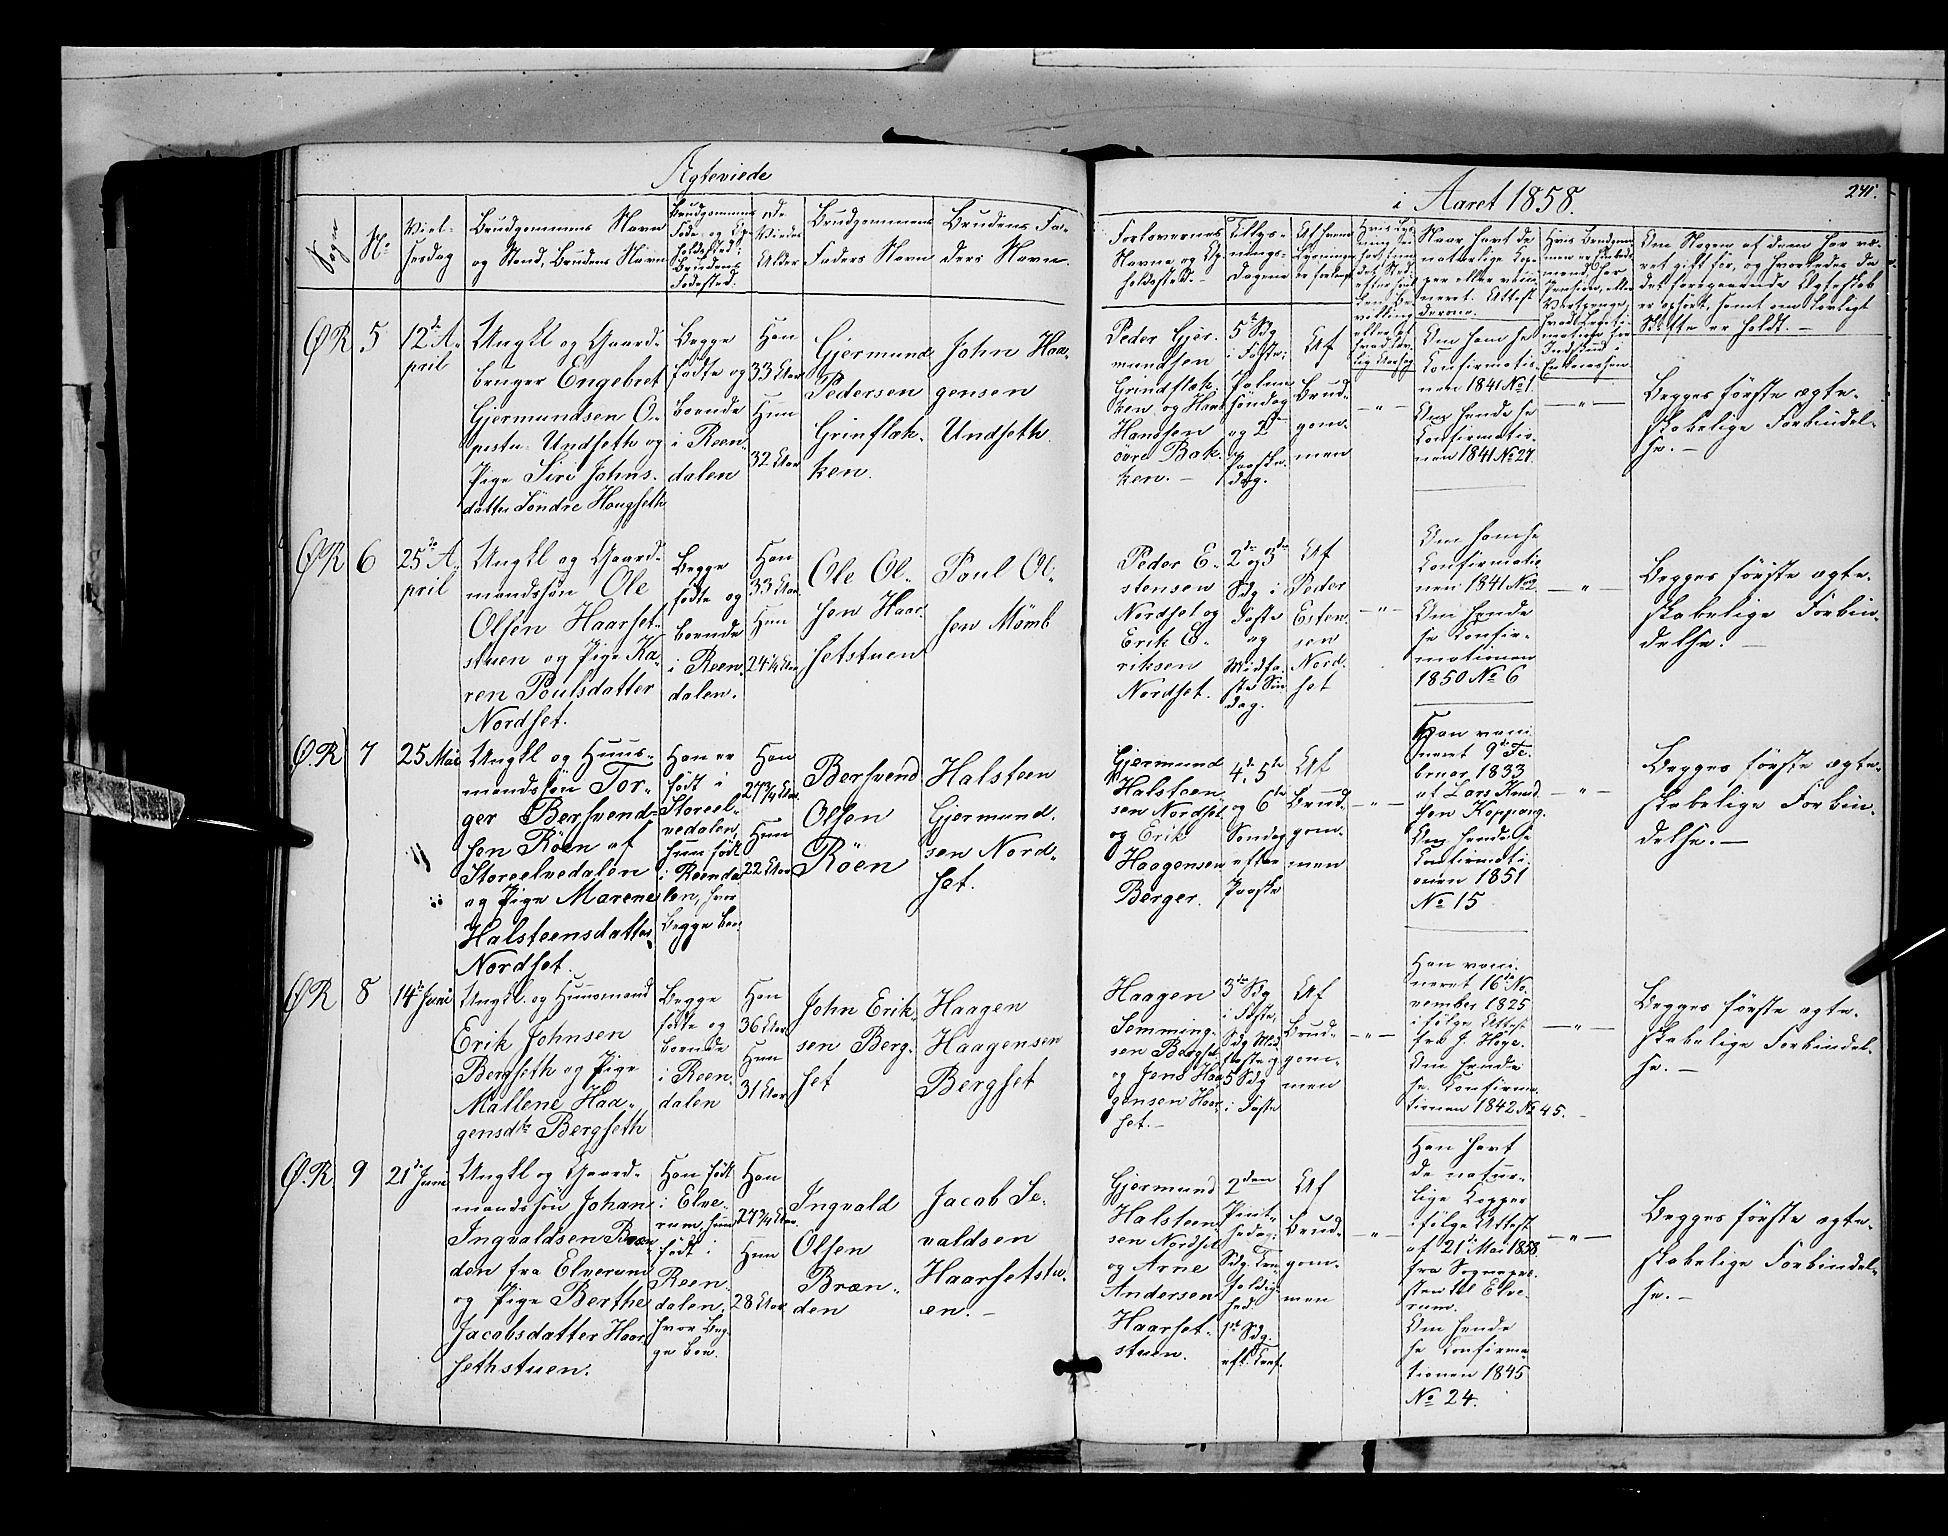 Ægteviede
i Aaret 1858.
241.
Sogn
No
Viel-
sesdag
Brudgommens Navn
og Stand, Brudens Navn
Brudgommens
Føde- og Op-
holdssted,
Brudens
Fødested.
De
Viedes
Alder
Brudgommens
Faders Navn
Brudens Fa-
ders Navn.
Forlovernes
Navne og Op-
holdssted.
Tillys-
nings-
Dagene
Af hvem
Lysningen
er forlangt
Naar havt de
naturlige Kop-
per eller vacci-
neret. Attest
derom.
Om Nogen af dem har væ-
ret gift før, og hvorledes da
det foregaaende Ægteskab
er ophört, samt om lovligt
Skifte er holdt.
ØR
5
12te A-
pril
Ungkl og Gaard-
bruger Engebret
Gjermundsen O-
pestu Undseth og
Pige Siri Johns-
datter Søndre Haugseth
Begge
födte og
boende
i Reen-
dalen
Han
33 Aar
Hun
32 Aar
Gjermund
Pedersen
Grinflak-
ken.
John Haa-
gensen
Undseth.
Peder Gjer-
mundsen
Grindflak-
ken og Hans
Hanssen
övre Bak-
ken.
5te Sdg
i Faste,
Palme
söndag
og 2den
Paaske-
dag.
Af
Brud-
gom-
men
— " —
Om ham se
Confirmatio-
nen 1841 No 1
Om hende se
Confirmatio-
nen 1841 No 27.
— " —
Begges förste ægte-
skabelige Forbindel-
se. —
ØR
6
25de A-
pril
Ungkl og Gaard-
mandssön Ole
Olsen Haarset-
stuen og Pige Ka-
ren Poulsdatter
Nordset.
Begge
födte og
boende
i Reen-
dalen.
Han
33 Aar
Hun
24¼ Aar
Ole Ol-
sen Haar-
setstuen
Poul Ol-
sen Mömb
Peder E-
stensen
Nordset og
Erik E-
riksen
Nordset.
2de og 3de
Sdg i
Faste
og
Midfa-
ste Sön-
dag.
Af
Peder
Esten-
sen
Nord-
set
— " —
Om ham se
Confirmatio-
nen 1841 No 2
Om hende
se Confir-
mationen
1850 No 6
— " —
Begges förste ægte-
skabelige Forbin-
delse. —
Ø.R
7
25 Mai
Ungkl og Huus-
mandssön Tor-
ger Bersvend-
sen Röen af
Storeelvedalen
og Pige Marene
Halsteensdatter
Nordset.
Han er
födt i
Storeel-
vedalen,
hun födt
i Reenda-
len, hvor
Begge boe
Han
27¾ Aar
Hun
22 Aar
Bersvend
Olsen
Röen
Halsteen
Gjermund-
sen Nord-
set.
Gjermund
Halsteen-
sen Nordset
og Erik
Haagensen
Berger.
4de, 5te
og 6te
Söndag
efter
Paaske
Af
Brud-
gom-
men
— " —
Han vacci-
neret 9de Fe-
bruar 1833
af Lars Knud-
sen Koppang.
Om hende se
Confirmati-
onen 1851
No 15
— " —
Begges förste ægte-
skabelige Forbin-
delse. —
ØR
8
14de Juni
Ungkl. og Huusmand
Erik Johnsen
Bergseth og Pige
Mallene Haa-
gensdtr Bergseth
Begge
födte og
boende
i Reen-
dalen
Han
36 Aar
Hun
31 Aar
John Erik-
sen Berg-
set
Haagen
Haagensen
Bergset
Haagen
Semming-
sen Bergset
og Jens Haa-
gensen Haar-
set. —
3de Sdg
i Faste,
Sdg Mid-
faste og
5 Sdg
i Faste
Af
Brud-
gom-
men
— " —
Han vacci-
neret 16de No-
vember 1825
ifølge Attest
fra J. Høye.
Om hende
se Confirma-
tionen 1842 No 45.
— " —
Begges förste ægte-
skabelige Forbindel-
se. —
Ø.R
9
21de Juni
Ungkl og Gaard-
mandssön Johan
Ingvaldsen Bræn-
den fra Elverum
og Pige Berthe
Jacobsdatter Haar-
sethstuen.
Han födt
i Elve-
rum, hun
födt i
Reen-
dalen,
hvor Beg-
ge boe.
Han
27¾ Aar
Hun
28 Aar
Ingvald
Olsen
Bræn-
den
Jacob Se-
valdsen
Haarsetstu-
en. —
Gjermund
Halsteen-
sen Nordset
og Arne
Andersen
Haarset-
stuen.
2den
Pint-
sedag,
Sdg Tre-
foldig-
hed,
1ste Sdg.
eft. Tref.
Af
Brud-
gom-
men
— " —
Han havt
de natur-
lige Kopper
ifølge Attest
af 21de Mai 1858
fra Sognepre-
sten til Elve-
rum.
Om hende
se Confirma-
tionen 1845
No 24.
— " —
Begges förste ægte-
skabelige Forbindel-
se. —